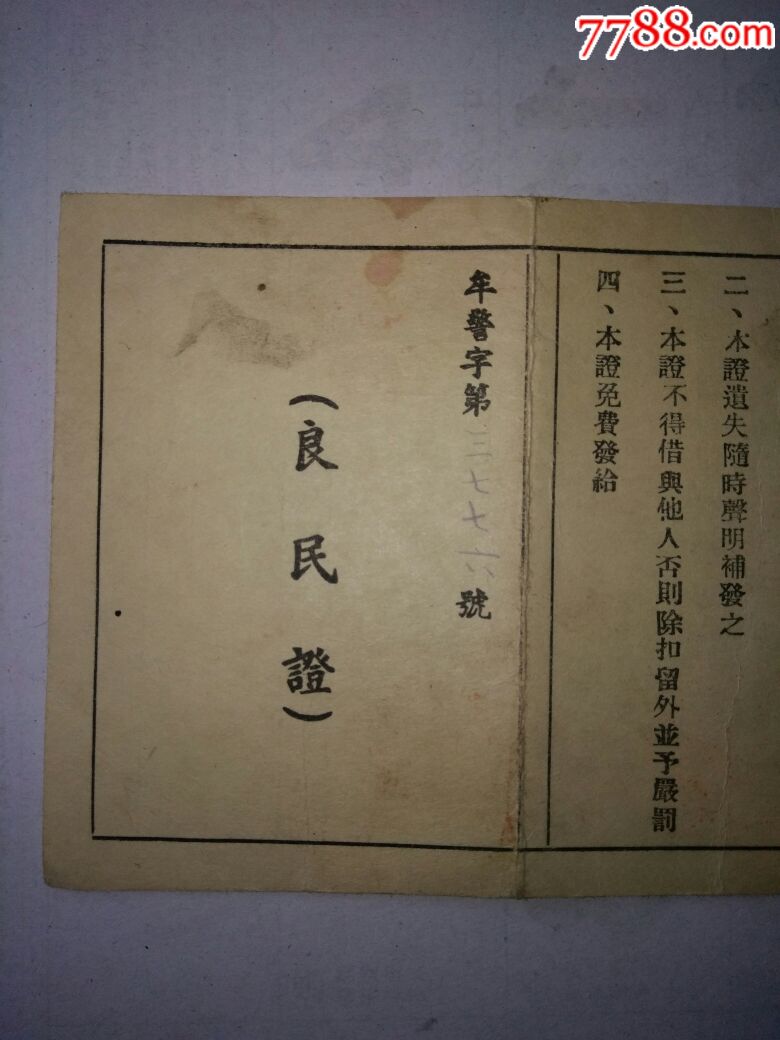 7788.com
二、本證遺失隨時聲明補發之
三、本證不得借與他人否則除扣留外並予嚴罰
四、本證免費發給
牟警字第三七七六號
（良民證）